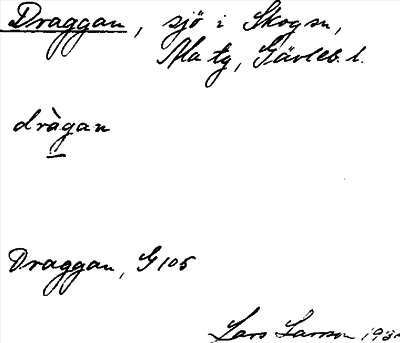 Draggan, sjö i Skogsn,
Ala tg, Gävleb. l.
dràgan
Draggan, G 105
Lars Larsson